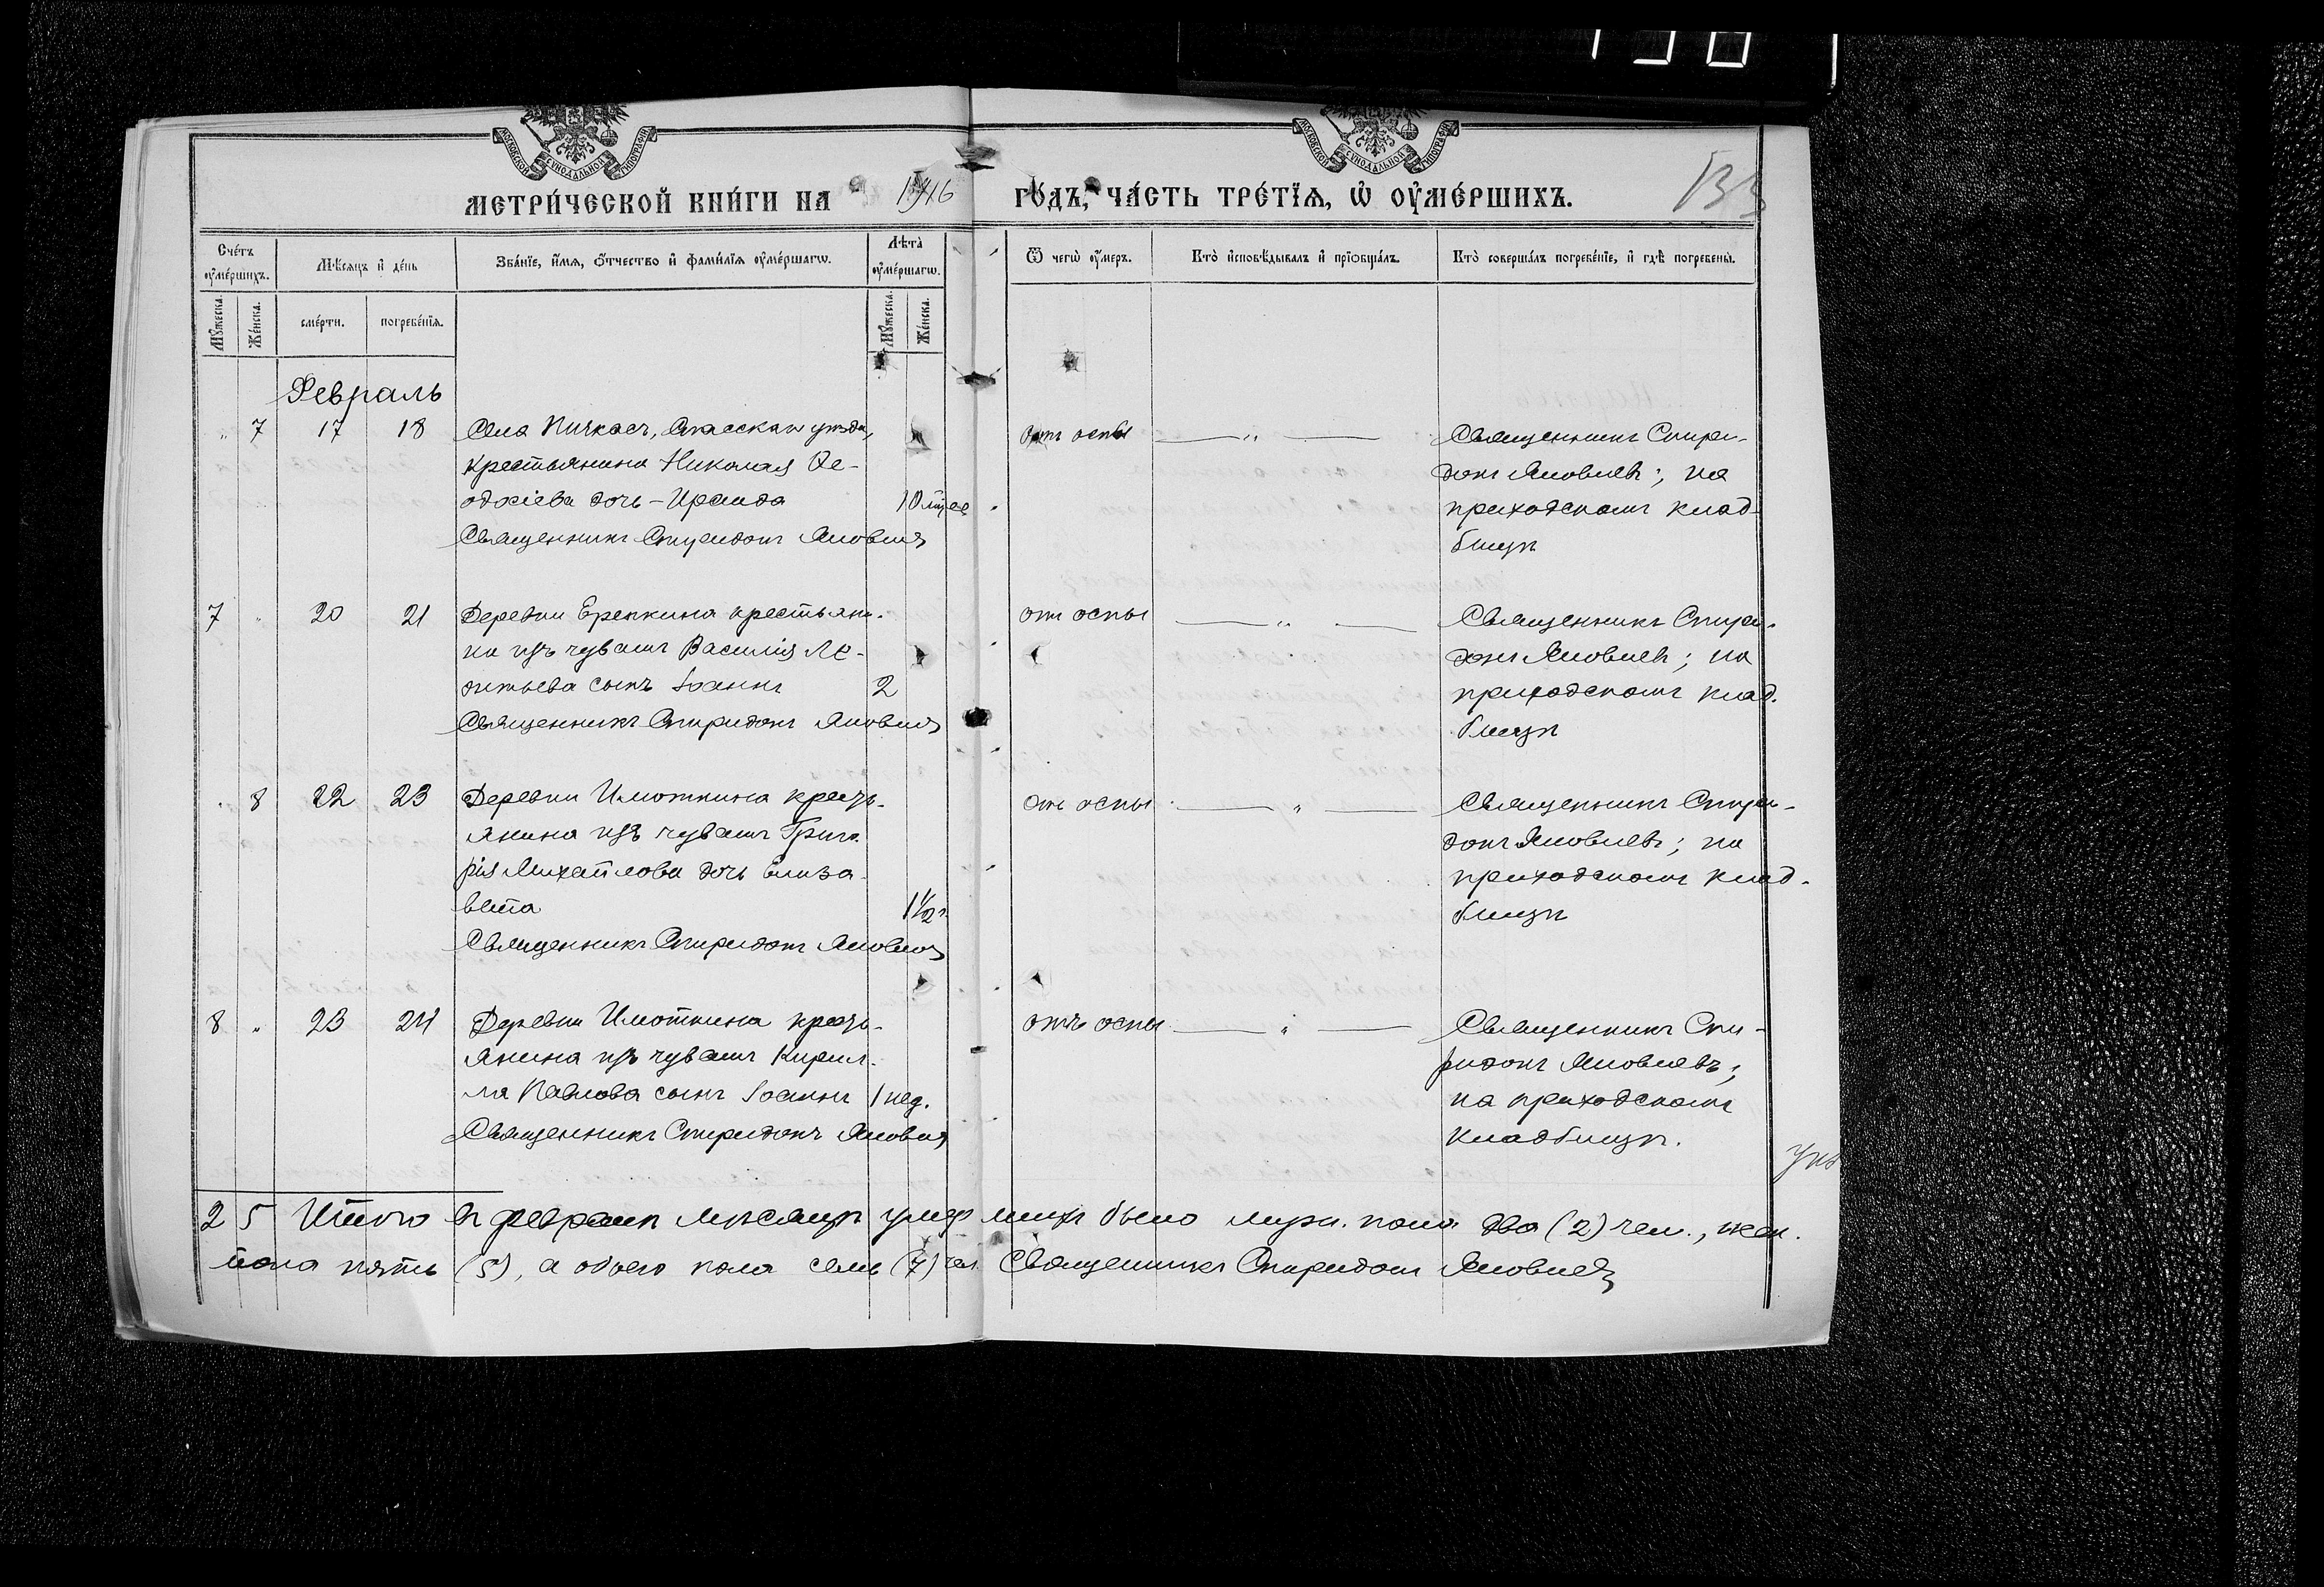 МОСКОВСКОЙ СУНОДАЛЬНОЙ ТИПОГРАФІИ
МОСКОВСКОЙ СУНОДАЛЬНОЙ ТИПОГРАФІИ
МЕТРИ́ЧЕСКОЙ КНИ́ГИ НА 1916 ГО́ДЪ, ЧА́СТЬ ТРЕ́ТЇѦ, Ѡ҆ ОУ҆МЕ́РШИХЪ.
133
Сче́тъ оу҆ме́ршихъ.
Мѣ́сяцъ и҆ де́нь
Зва́нїе, и҆́мѧ, ѻ҆́тчество и҆ фами́лїѧ оу҆ме́ршагѡ.
Лѣ́та оу҆ме́ршагѡ.
Ѿ чегѡ̀ оу҆́меръ.
Кто̀ и҆сповѣ́дывалъ и҆ прїѡбща́лъ.
Кто̀ соверша́лъ погребе́нїе, и҆ гдѣ̀ погребены̀.
Мꙋ́жеска. Же́нска.
сме́рти. погребе́нїѧ.
Мꙋ́жеска. Же́нска.
Февраль
" 7 17 18 Села Пичкасъ, Спасскаго уѣзда,
крестьянина Николая Ѳе-
одосіева дочь – Ираида
Священникъ Спиридонъ Яковлевъ
отъ оспы — " —
Священникъ Спири-
донъ Яковлевъ; на
приходскомъ клад-
бищѣ
7 " 20 21 Деревни Ерепкина крестьяни-
на изъ чувашъ Василія Ле-
онтьева сынъ Іоаннъ 2
Священникъ Спиридонъ Яковлевъ
отъ оспы — " —
Священникъ Спири-
донъ Яковлевъ; на
приходскомъ клад-
бищѣ
" 8 22 23 Деревни Илюткина кресть-
янина изъ чувашъ Григо-
рія Михайлова дочь Елиза-
вета 1½ г.
Священникъ Спиридонъ Яковлевъ
отъ оспы — " —
Священникъ Спири-
донъ Яковлевъ; на
приходскомъ клад-
бищѣ
8 " 23 24 Деревни Илюткина кресть-
янина изъ чувашъ Кирил-
ла Павлова сынъ Іоаннъ 1 нед.
Священникъ Спиридонъ Яковлевъ
отъ оспы — " —
Священникъ Спи-
ридонъ Яковлевъ;
на приходскомъ
кладбищѣ.
2 5 Итого въ февралѣ мѣсяцѣ умершихъ было муж. пола два (2) чел., жен.
пола пять (5), а обоего пола семь (7) чел. Священникъ Спиридонъ Яковлевъ